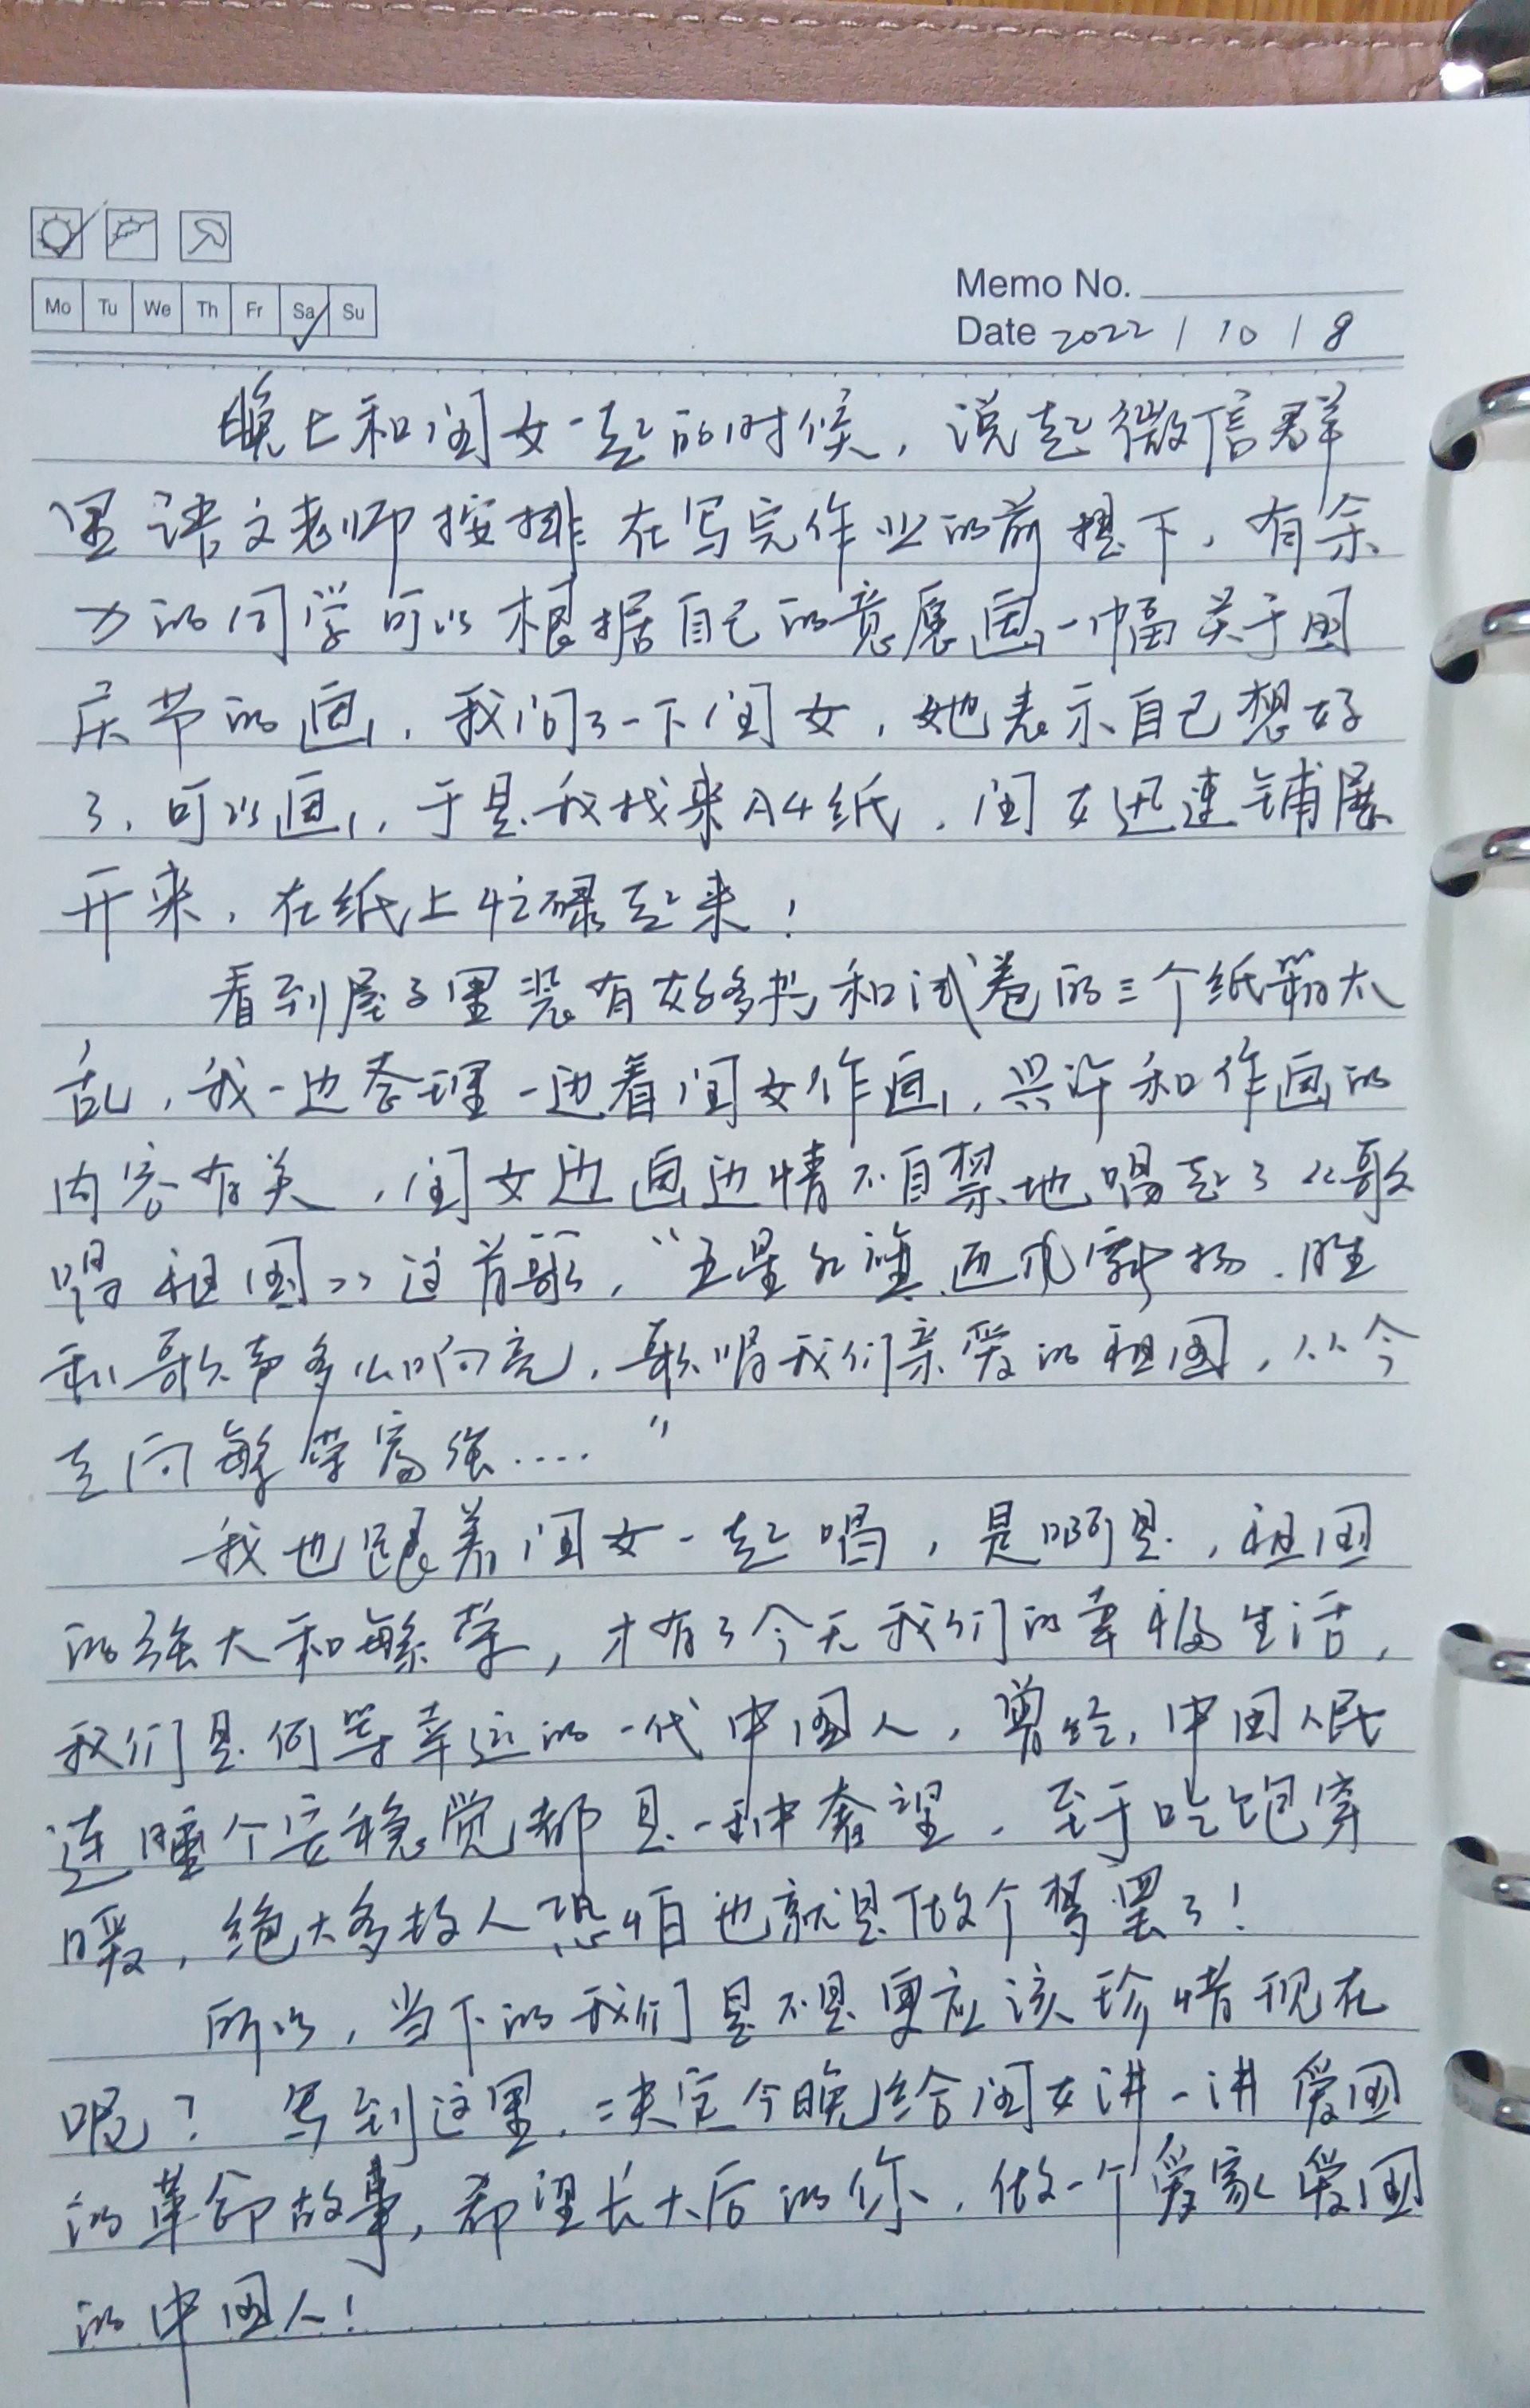 Mo Tu We Th Fr Sa Su
Memo No.
Date 2022 / 10 / 8
晚上和闺女一起的时候，说起微信群
里语文老师按排在写完作业的前提下，有余
力的同学可以根据自己的意愿画一幅关于国
庆节的画，我问了一下闺女，她表示自己想好
了，可以画，于是我找来A4纸，闺女迅速铺展
开来，在纸上忙碌起来！
看到屋子里装有好多书和试卷的三个纸箱太
乱，我一边整理一边看闺女作画，兴许和作画的
内容有关，闺女边画边情不自禁地唱起了《歌
唱祖国》这首歌，“五星红旗迎风飘扬，胜
利歌声多么响亮，歌唱我们亲爱的祖国，从今
走向繁荣富强····”
我也跟着闺女一起唱，是啊是，祖国
的强大和繁荣，才有了今天我们的幸福生活，
我们是何等幸运的一代中国人，曾经，中国人民
连睡个安稳觉都是一种奢望，至于吃饱穿
暖，绝大多数人恐怕也就是做个梦罢了！
所以，当下的我们是不是更应该珍惜现在
呢？写到这里，决定今晚给闺女讲一讲爱国
的革命故事，希望长大后的你，做一个爱家爱国
的中国人！